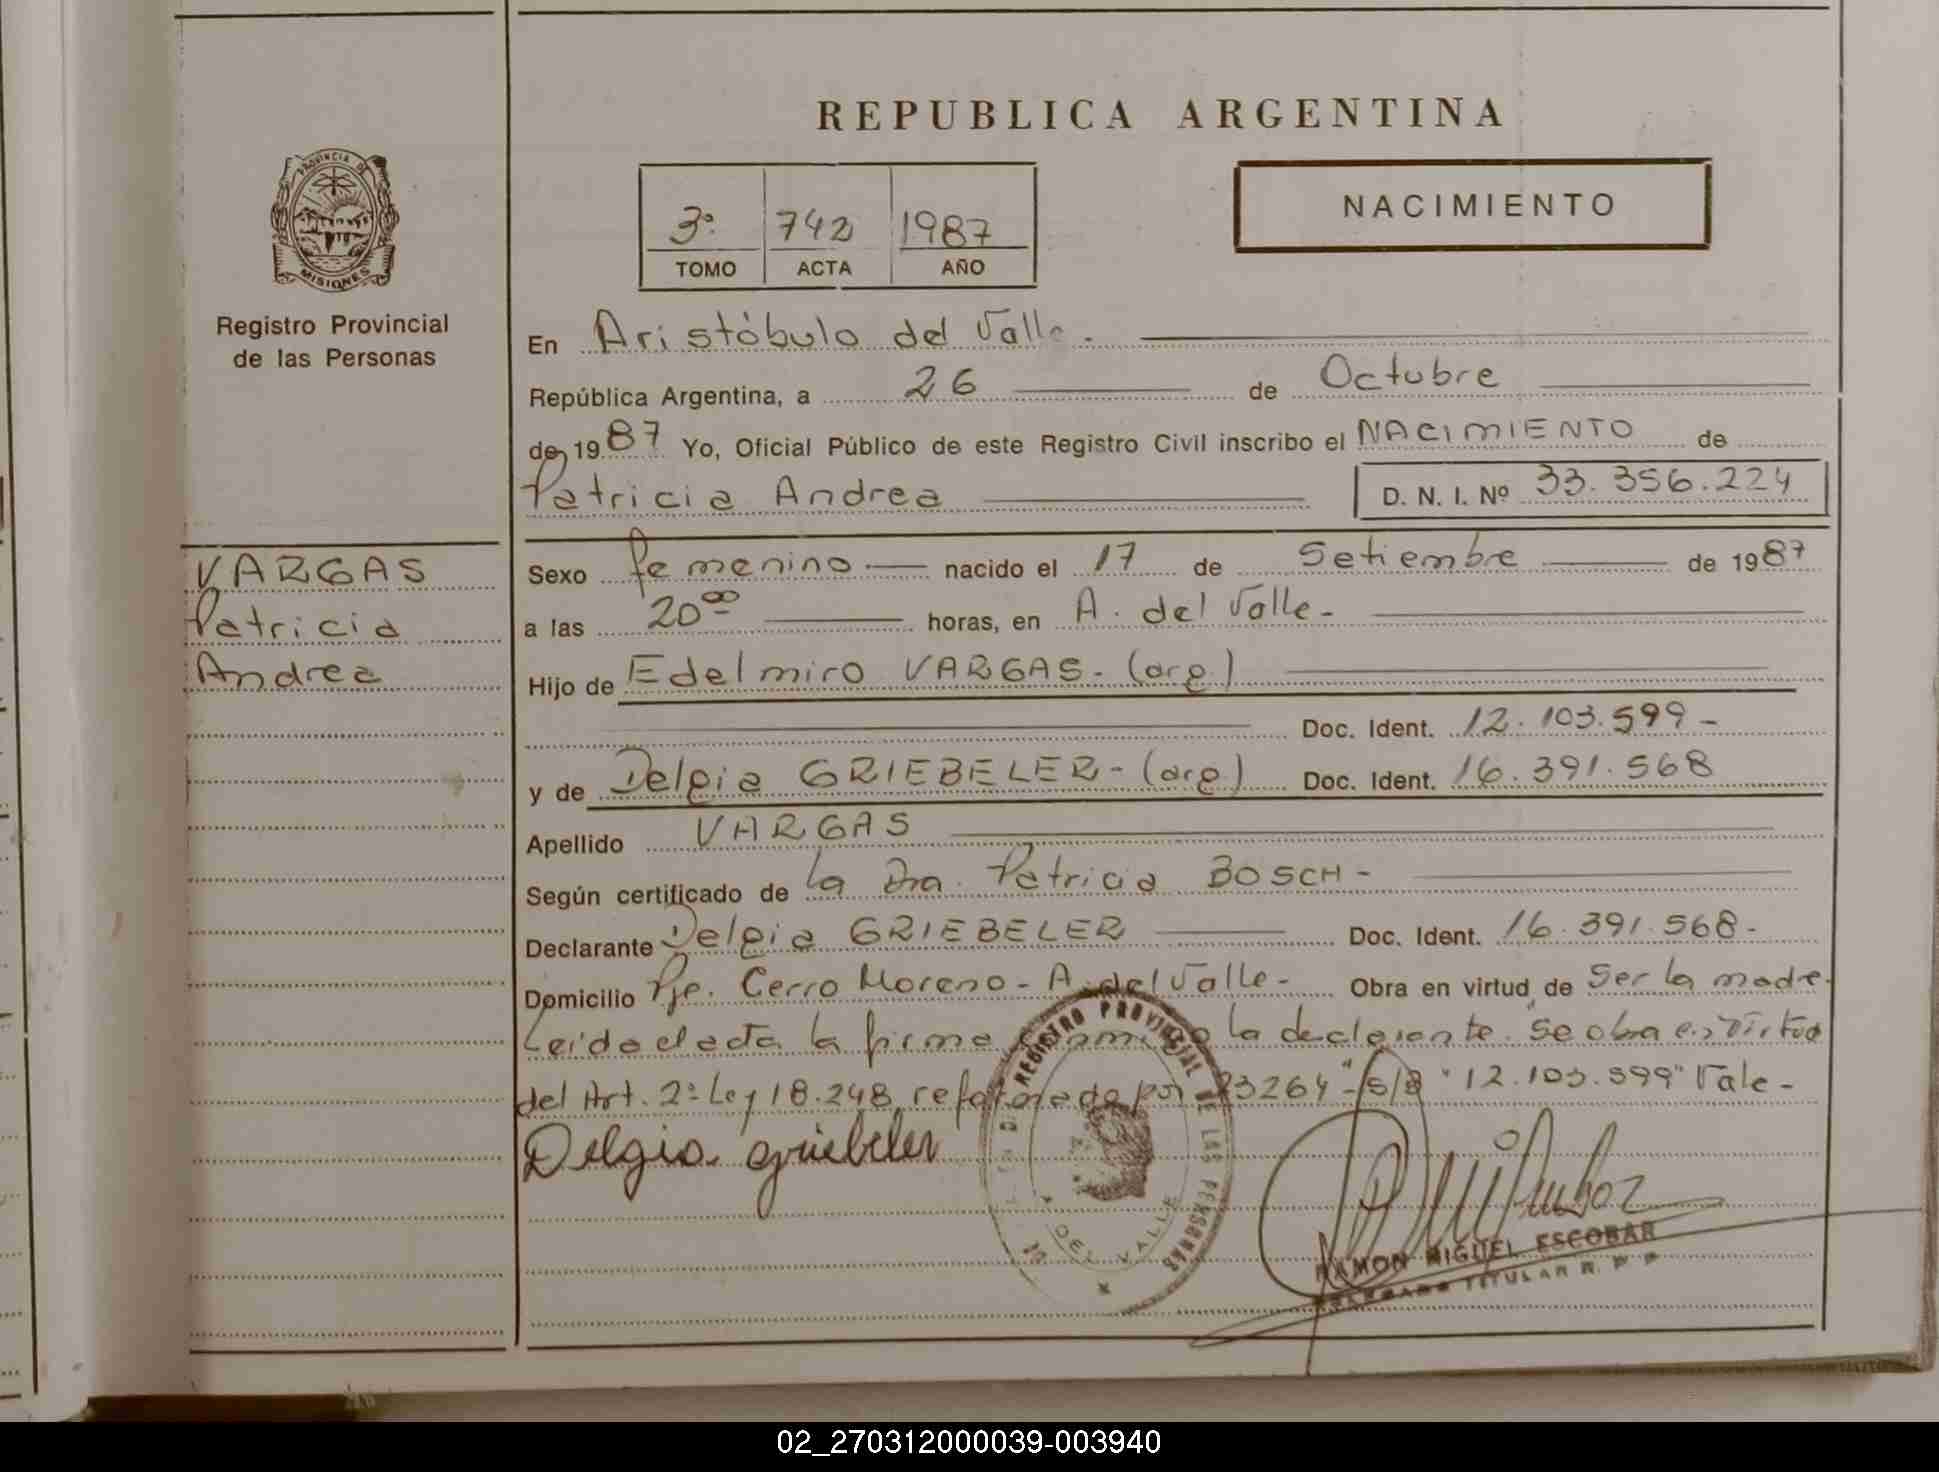 REPUBLICA ARGENTINA
PROVINCIA DE
MISIONES
Registro Provincial
de las Personas
3º 742 1987
TOMO ACTA AÑO
NACIMIENTO
En Aristóbulo del Valle.
República Argentina, a 26 de Octubre
de 1987 Yo, Oficial Público de este Registro Civil inscribo el NACIMIENTO de
Patricia Andrea D. N. I. Nº 33.356.224
VARGAS
Patricia
Andrea
Sexo femenino nacido el 17 de Setiembre de 1987
a las 20⁰⁰ horas, en A. del Valle-
Hijo de Edelmiro VARGAS- (arg.)
Doc. Ident. 12.103.599-
y de Delgia GRIEBELER- (arg.) Doc. Ident. 16.391.568
Apellido VARGAS
Según certificado de la Dra. Patricia BOSCH-
Declarante Delgia GRIEBELER Doc. Ident. 16.391.568-
Domicilio Pje. Cerro Moreno- A. del Valle- Obra en virtud de Ser la madre.
Leida el acta la firma conmigo la declarante. "Se obra en virtud
del Art. 2º Ley 18.248 reformada por 23264"- s/r "12.103.599" Vale-
Delgia griebeler
REGISTRO PROVINCIAL DE LAS PERSONAS
A DEL VALLE
RAMON MIGUEL ESCOBAR
DELEGADO TITULAR R. P. P
02_270312000039-003940